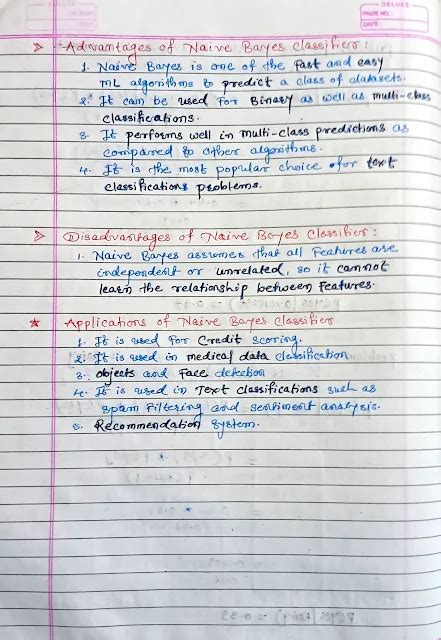 DELUXE
PAGE NO.:
DATE:
Advantages of Naive Bayes Classifier:
1. Naive Bayes is one of the fast and easy
ML algorithms to predict a class of datasets.
2. It can be used for Binary as well as multi-class
classifications.
3. It performs well in multi-class predictions as
compared to other algorithms.
4. It is the most popular choice for text
classifications problems.
Disadvantages of Naive Bayes Classifier:
1. Naive Bayes assumes that all Features are
independent or unrelated, so it cannot
learn the relationship between features.
Applications of Naive Bayes Classifier
1. It is used for Credit scoring.
2. It is used in medical data classification
3. objects and Face detection
4. It is used in Text classifications such as
spam Filtering and sentiment analysis.
5. Recommendation System.